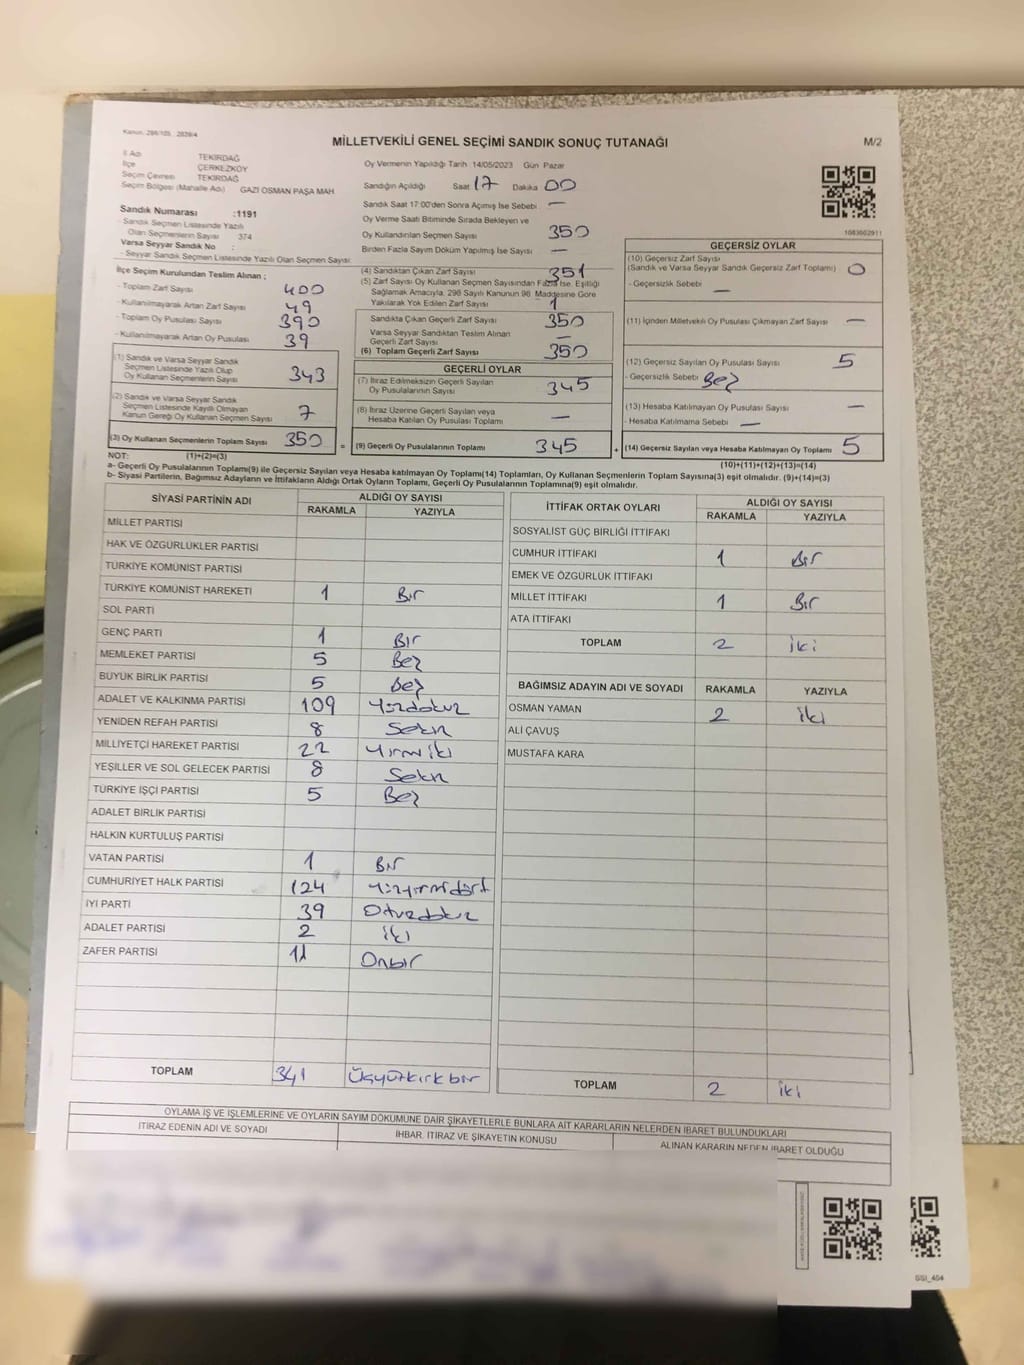 Kanun, 298/105 2839/4
MİLLETVEKİLİ GENEL SEÇİMİ SANDIK SONUÇ TUTANAĞI
M/2
İl Adı TEKİRDAĞ
İlçe ÇERKEZKÖY
Seçim Çevresi TEKİRDAĞ
Seçim Bölgesi (Mahalle Adı) GAZİ OSMAN PAŞA MAH.
Sandık Numarası :1191
- Sandık Seçmen Listesinde Yazılı Olan Seçmenlerin Sayısı 374
Varsa Seyyar Sandık No :
- Seyyar Sandık Seçmen Listesinde Yazılı Olan Seçmen Sayısı:
İlçe Seçim Kurulundan Teslim Alınan ;
- Toplam Zarf Sayısı 400
- Kullanılmayarak Artan Zarf Sayısı 49
- Toplam Oy Pusulası Sayısı 390
- Kullanılmayarak Artan Oy Pusulası 39
(1) Sandık ve Varsa Seyyar Sandık
Seçmen Listesinde Yazılı Olup
Oy Kullanan Seçmenlerin Sayısı 343
(2) Sandık ve Varsa Seyyar Sandık
Seçmen Listesinde Kayıtlı Olmayan
Kanun Gereği Oy Kullanan Seçmen Sayısı 7
(3) Oy Kullanan Seçmenlerin Toplam Sayısı 350
Oy Vermenin Yapıldığı Tarih 14/05/2023 Gün Pazar
Sandığın Açıldığı Saat 17 Dakika 00
Sandık Saat 17:00'den Sonra Açılmış İse Sebebi —
Oy Verme Saati Bitiminde Sırada Bekleyen ve
Oy Kullandırılan Seçmen Sayısı 350
Birden Fazla Sayım Döküm Yapılmış İse Sayısı —
(4) Sandıktan Çıkan Zarf Sayısı 351
(5) Zarf Sayısı Oy Kullanan Seçmen Sayısından Fazla İse, Eşitliği
Sağlamak Amacıyla, 298 Sayılı Kanunun 98. Maddesine Göre
Yakılarak Yok Edilen Zarf Sayısı 1
Sandıkta Çıkan Geçerli Zarf Sayısı 350
Varsa Seyyar Sandıktan Teslim Alınan
Geçerli Zarf Sayısı —
(6) Toplam Geçerli Zarf Sayısı 350
GEÇERLİ OYLAR
(7) İtiraz Edilmeksizin Geçerli Sayılan
Oy Pusulalarının Sayısı 345
(8) İtiraz Üzerine Geçerli Sayılan veya
Hesaba Katılan Oy Pusulası Toplamı —
= (9) Geçerli Oy Pusulalarının Toplamı 345
1083002911
GEÇERSİZ OYLAR
(10) Geçersiz Zarf Sayısı
(Sandık ve Varsa Seyyar Sandık Geçersiz Zarf Toplamı) 0
- Geçersizlik Sebebi —
(11) İçinden Milletvekili Oy Pusulası Çıkmayan Zarf Sayısı —
(12) Geçersiz Sayılan Oy Pusulası Sayısı 5
- Geçersizlik Sebebi Beş
(13) Hesaba Katılmayan Oy Pusulası Sayısı —
- Hesaba Katılmama Sebebi —
+ (14) Geçersiz Sayılan veya Hesaba Katılmayan Oy Toplamı 5
NOT: (1)+(2)=(3)
(10)+(11)+(12)+(13)=(14)
a- Geçerli Oy Pusulalarının Toplamı(9) ile Geçersiz Sayılan veya Hesaba katılmayan Oy Toplam(14) Toplamları, Oy Kullanan Seçmenlerin Toplam Sayısına(3) eşit olmalıdır. (9)+(14)=(3)
b- Siyasi Partilerin, Bağımsız Adayların ve İttifakların Aldığı Ortak Oyların Toplamı, Geçerli Oy Pusulalarının Toplamına(9) eşit olmalıdır.
SİYASİ PARTİNİN ADI ALDIĞI OY SAYISI
RAKAMLA YAZIYLA
MİLLET PARTİSİ
HAK VE ÖZGÜRLÜKLER PARTİSİ
TÜRKİYE KOMÜNİST PARTİSİ
TÜRKİYE KOMÜNİST HAREKETİ 1 Bir
SOL PARTİ
GENÇ PARTİ 1 Bir
MEMLEKET PARTİSİ 5 Beş
BÜYÜK BİRLİK PARTİSİ 5 Beş
ADALET VE KALKINMA PARTİSİ 109 Yüzdokuz
YENİDEN REFAH PARTİSİ 8 Sekiz
MİLLİYETÇİ HAREKET PARTİSİ 22 Yirmiiki
YEŞİLLER VE SOL GELECEK PARTİSİ 8 Sekiz
TÜRKİYE İŞÇİ PARTİSİ 5 Beş
ADALET BİRLİK PARTİSİ
HALKIN KURTULUŞ PARTİSİ
VATAN PARTİSİ 1 Bir
CUMHURİYET HALK PARTİSİ 124 Yüzyirmidört
İYİ PARTİ 39 Otuzdokuz
ADALET PARTİSİ 2 İki
ZAFER PARTİSİ 11 Onbir
TOPLAM 341 Üçyüzkırkbir
İTTİFAK ORTAK OYLARI ALDIĞI OY SAYISI
RAKAMLA YAZIYLA
SOSYALİST GÜÇ BİRLİĞİ İTTİFAKI
CUMHUR İTTİFAKI 1 Bir
EMEK VE ÖZGÜRLÜK İTTİFAKI
MİLLET İTTİFAKI 1 Bir
ATA İTTİFAKI
TOPLAM 2 İki
BAĞIMSIZ ADAYIN ADI VE SOYADI RAKAMLA YAZIYLA
OSMAN YAMAN 2 İki
ALİ ÇAVUŞ
MUSTAFA KARA
TOPLAM 2 İki
OYLAMA İŞ VE İŞLEMLERİNE VE OYLARIN SAYIM DÖKÜMÜNE DAİR ŞİKAYETLERLE BUNLARA AİT KARARLARIN NELERDEN İBARET BULUNDUKLARI
İTİRAZ EDENİN ADI VE SOYADI İHBAR, İTİRAZ VE ŞİKAYETİN KONUSU ALINAN KARARIN NEDEN İBARET OLDUĞU
SSI_404